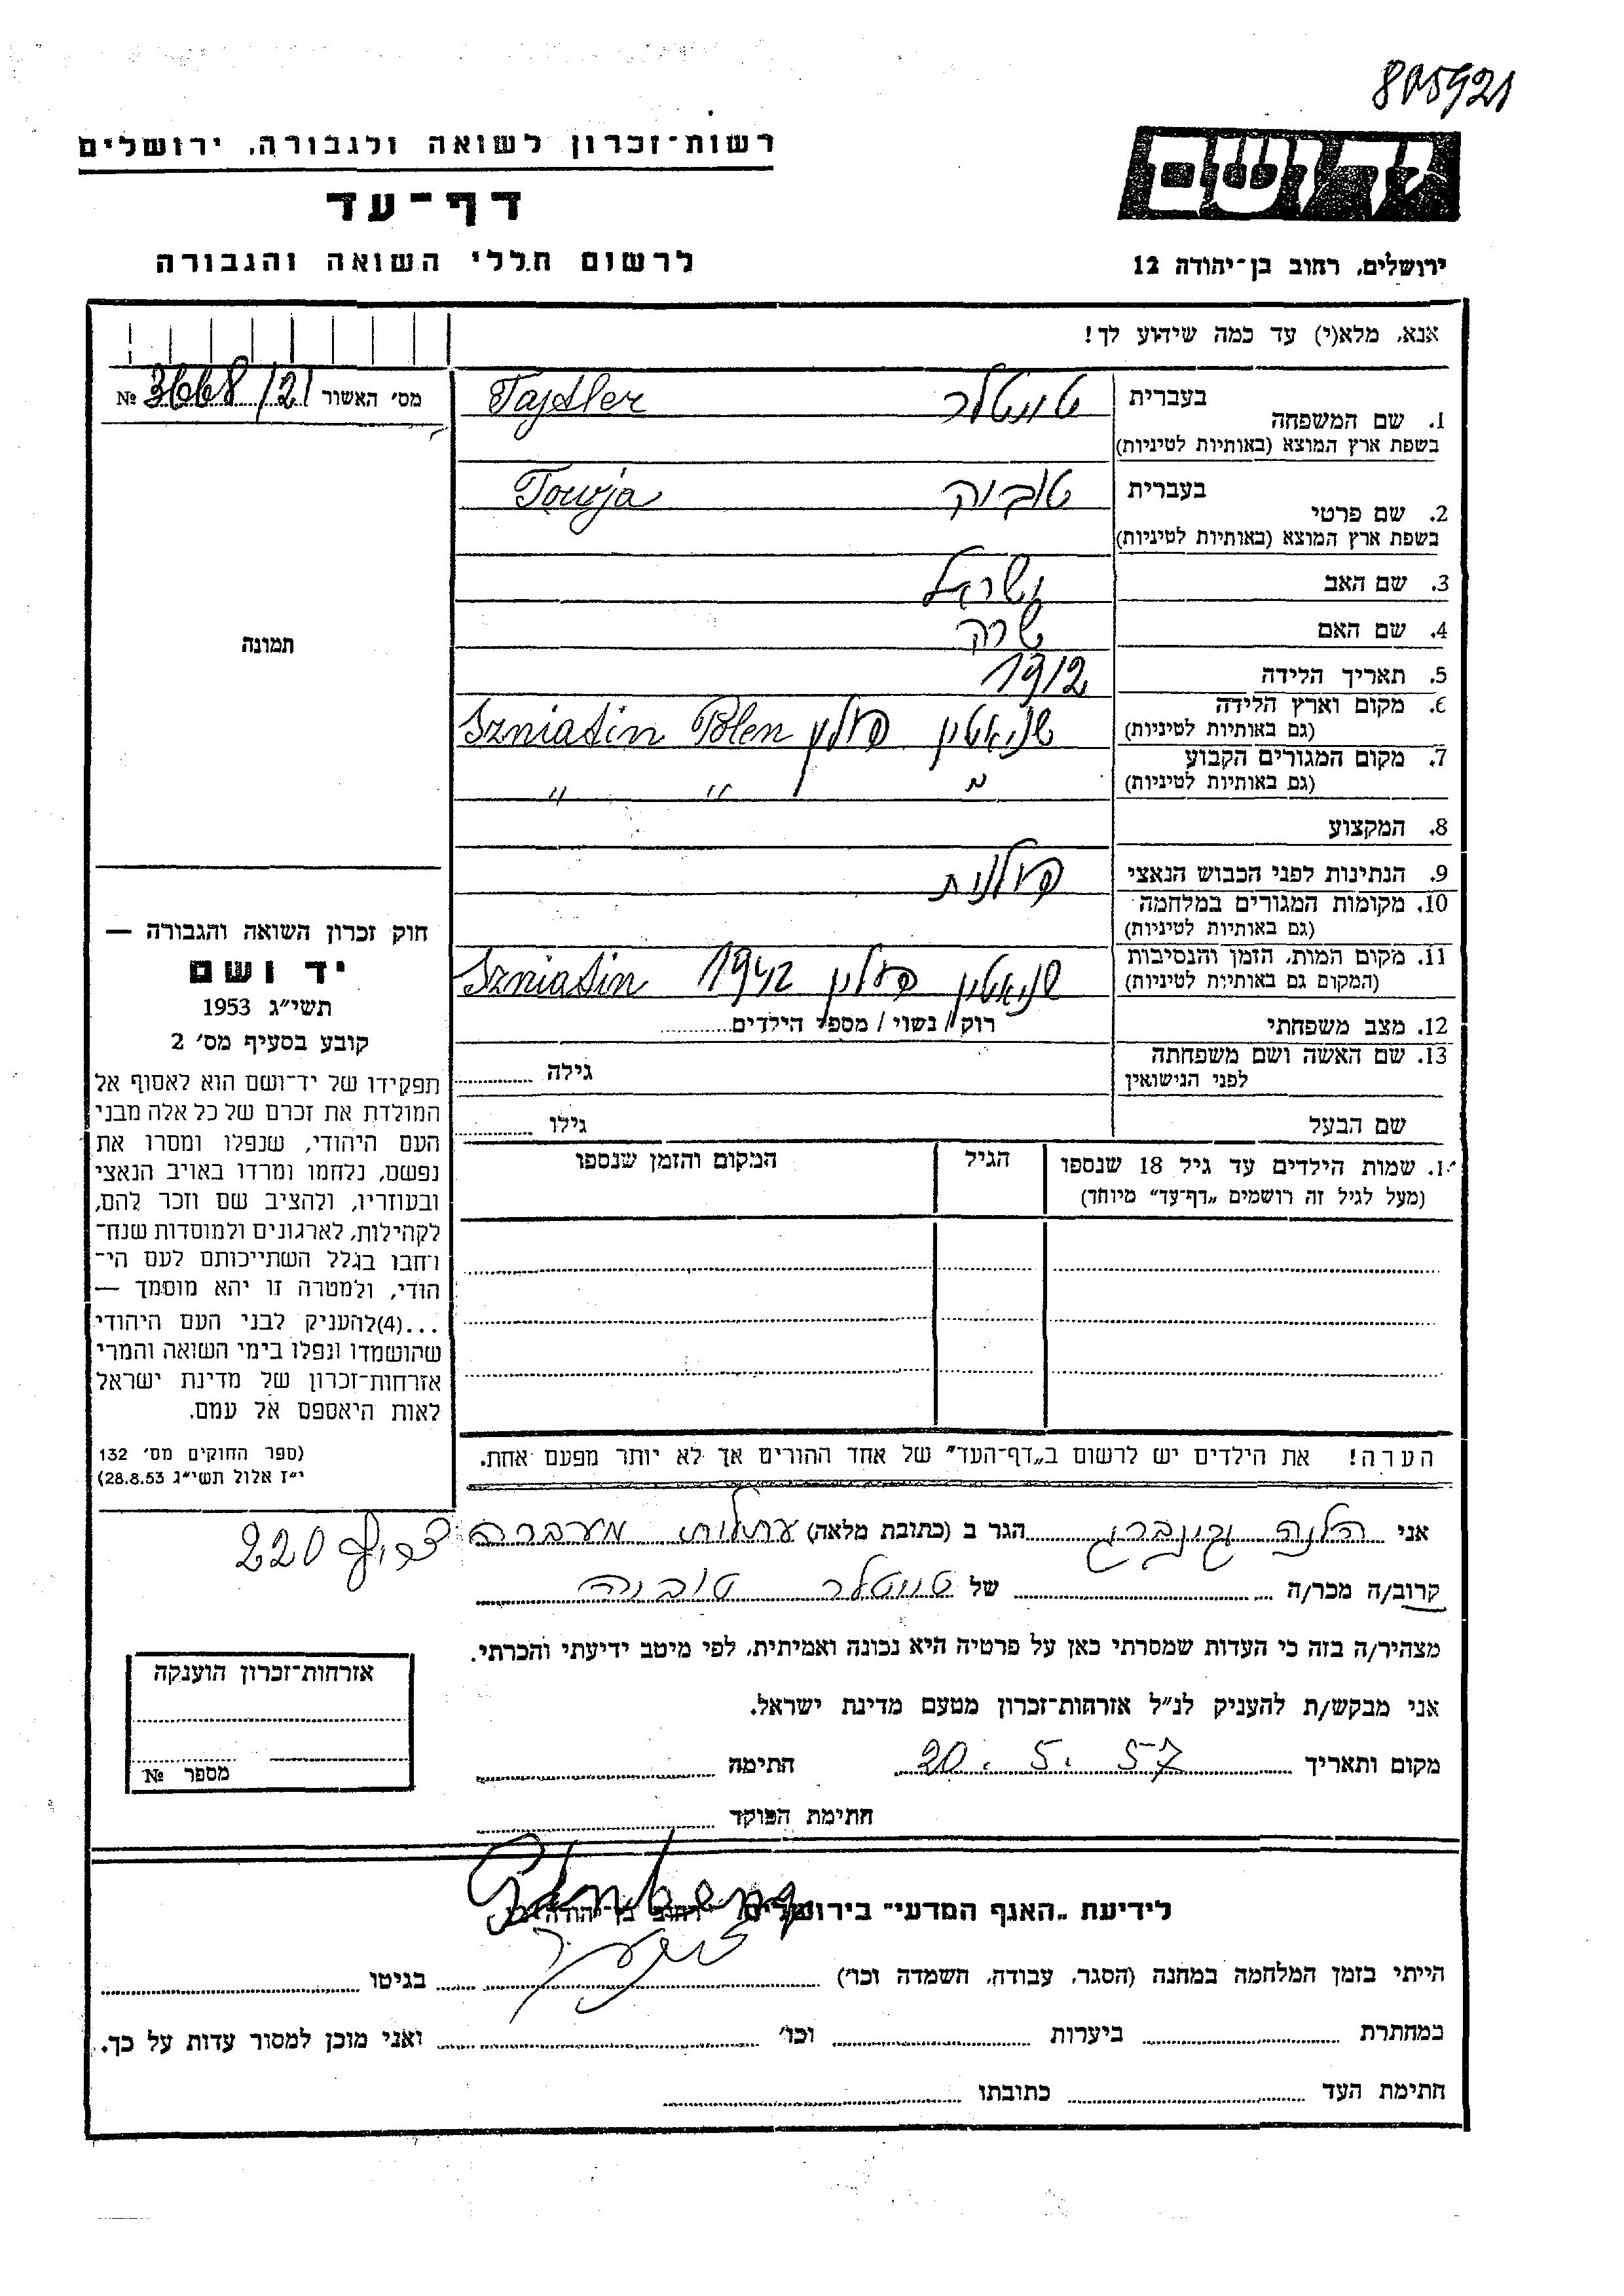 805921
רשות-זכרון לשואה ולגבורה, ירושלים
דף-עד
לרשום חללי השואה והגבורה
יד ושם
ירושלים, רחוב בן-יהודה 12
אנא, מלא(י) עד כמה שידוע לך!
מס׳ האשור 3668/21 №
1. שם המשפחה בעברית טייטלר Tajtler
בשפת ארץ המוצא (באותיות לטיניות)
2. שם פרטי בעברית טוביה Towja
בשפת ארץ המוצא (באותיות לטיניות)
3. שם האב ישראל
4. שם האם שרה
תמונה
5. תאריך הלידה 1912
6. מקום וארץ הלידה שניאטין פולין Szniatin Polen
(גם באותיות לטיניות)
7. מקום המגורים הקבוע " " "
(גם באותיות לטיניות)
8. המקצוע
9. הנתינות לפני הכבוש הנאצי פולנית
10. מקומות המגורים במלחמה
(גם באותיות לטיניות)
11. מקום המות, הזמן והנסיבות שניאטין פולין 1942 Szniatin
(המקום גם באותיות לטיניות)
12. מצב משפחתי רוק / נשוי / מספר הילדים
13. שם האשה ושם משפחתה גילה
לפני הנישואין
שם הבעל גילו
1. שמות הילדים עד גיל 18 שנספו הגיל המקום והזמן שנספו
(מעל לגיל זה רושמים „דף-עד" מיוחד)
חוק זכרון השואה והגבורה —
יד ושם
תשי״ג 1953
קובע בסעיף מס׳ 2
תפקידו של יד-ושם הוא לאסוף אל
המולדת את זכרם של כל אלה מבני
העם היהודי, שנפלו ומסרו את
נפשם, נלחמו ומרדו באויב הנאצי
ובעוזריו, ולהציב שם וזכר להם,
לקהילות, לארגונים ולמוסדות שנח-
רחבו בגלל השתייכותם לעם הי-
הודי, ולמטרה זו יהא מוסמך —
...(4)להעניק לבני העם היהודי
שהושמדו ונפלו בימי השואה והמרי
אזרחות-זכרון של מדינת ישראל
לאות היאספם אל עמם.
(ספר החוקים מס׳ 132
י״ז אלול תשי״ג 28.8.53)
הערה! את הילדים יש לרשום ב„דף-העד" של אחד ההורים אך לא יותר מפעם אחת.
אני הלנה גינברג הגר ב (כתובת מלאה) עתלית מעברה צריף 220
קרוב/ה מכר/ה של טייטלר טוביה
מצהיר/ה בזה כי העדות שמסרתי כאן על פרטיה היא נכונה ואמיתית, לפי מיטב ידיעתי והכרתי.
אני מבקש/ת להעניק לנ״ל אזרחות-זכרון מטעם מדינת ישראל.
מקום ותאריך 20. 5. 57 חתימה
חתימת הפוקד
אזרחות-זכרון הוענקה
מספר №
לידיעת „האגף המדעי" בירושלים רחוב בן-יהודה
הייתי בזמן המלחמה במחנה (הסגר, עבודה, השמדה וכו׳) בגיטו
במחתרת ביערות וכו׳ ואני מוכן למסור עדות על כך.
חתימת העד כתובתו